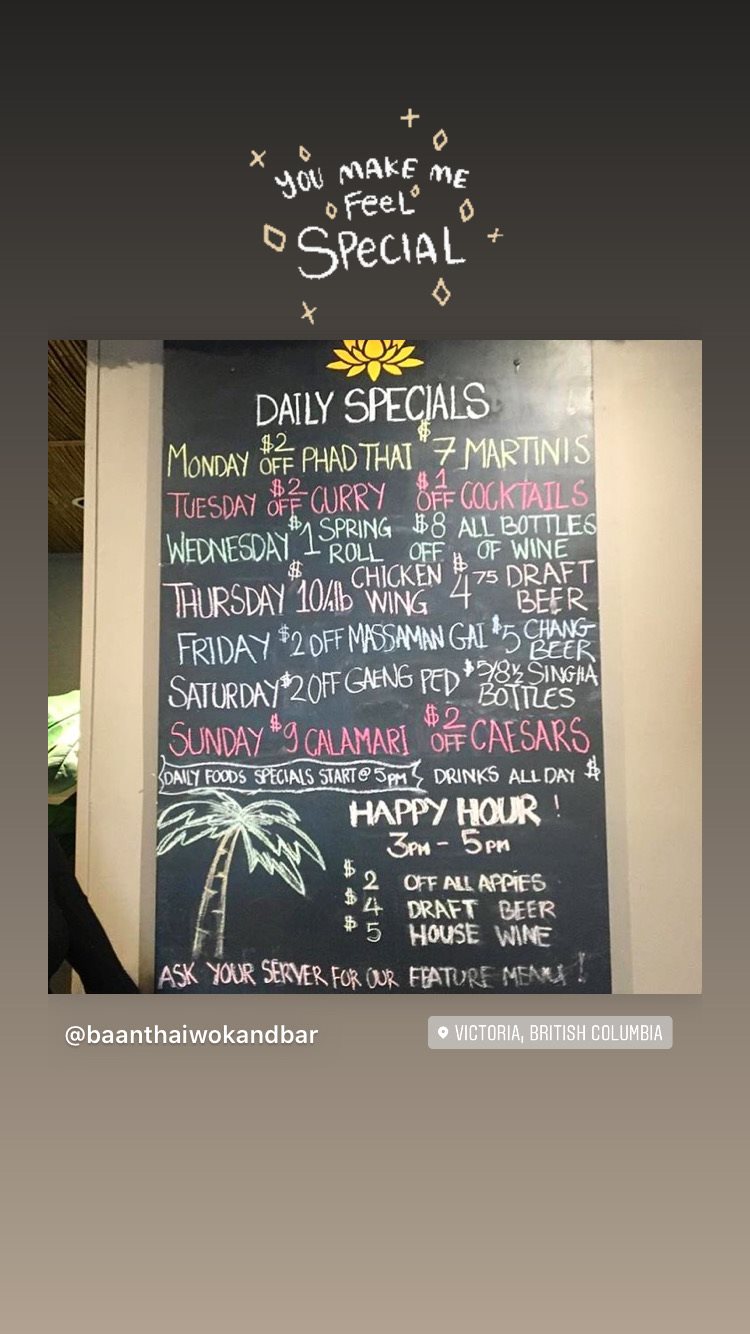 YOU MAKE ME
FEEL
SPECIAL
DAILY SPECIALS
MONDAY $2 OFF PHAD THAI $7 MARTINIS
TUESDAY $2 OFF CURRY $1 OFF COCKTAILS
WEDNESDAY $1 SPRING ROLL $8 OFF ALL BOTTLES OF WINE
THURSDAY $10/lb CHICKEN WING $4.75 DRAFT BEER
FRIDAY $2 OFF MASSAMAN GAI $5 CHANG BEER
SATURDAY $2 OFF GAENG PED SINGHA BOTTLES
SUNDAY $9 CALAMARI $2 OFF CAESARS
DAILY FOODS SPECIALS START @ 5PM DRINKS ALL DAY $
HAPPY HOUR !
3PM - 5PM
$2 OFF ALL APPIES
$4 DRAFT BEER
$5 HOUSE WINE
ASK YOUR SERVER FOR OUR FEATURE MENU !
@baanthaiwokandbar
VICTORIA, BRITISH COLUMBIA